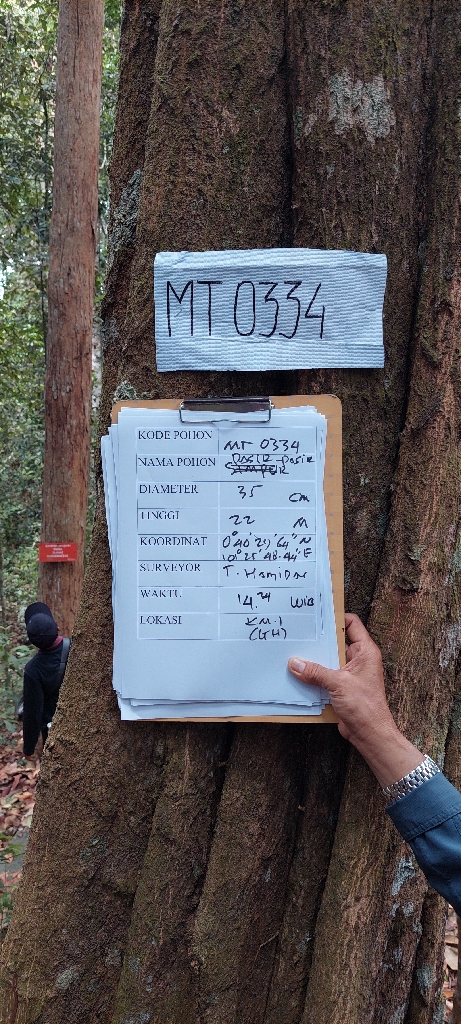 MT 0334
KODE POHON MT 0334
NAMA POHON Pasir Pasir
DIAMETER 35 cm
TINGGI 22 M
KOORDINAT 0°40'29'64"N
10°25'48.44"E
SURVEYOR T. Hamidar
WAKTU 14.24 WIB
LOKASI KM.1
(GH)